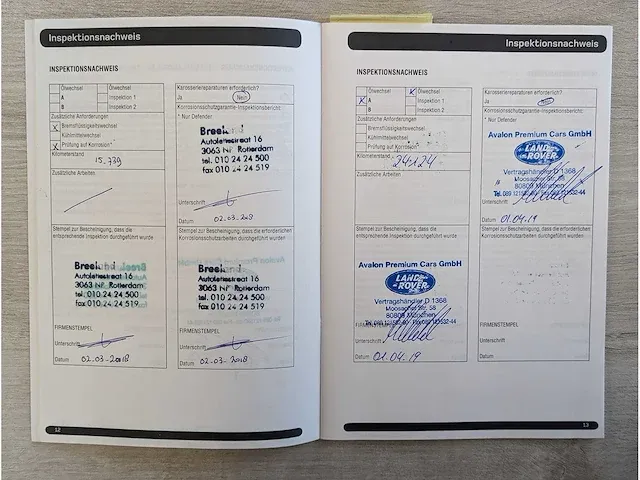 Inspektionsnachweis
INSPEKTIONSNACHWEIS
Ölwechsel
A Inspektion 1
B Inspektion 2
Zusätzliche Anforderungen
X Bremsflüssigkeitswechsel
Kühlmittelwechsel
X Prüfung auf Korrosion*
Kilometerstand 15.739
Zusätzliche Arbeiten
Karosseriereparaturen erforderlich?
Ja Nein
Korrosionsschutzgarantie-Inspektionsbericht:
* Nur Defender
Autoletestraat 16
3063 NP Rotterdam
tel. 010 24 24 500
fax 010 24 24 519
Unterschrift
Datum 02.03.2018
Stempel zur Bescheinigung, dass die
entsprechende Inspektion durchgeführt wurde
Autoletestraat 16
3063 NP Rotterdam
tel. 010 24 24 500
fax 010 24 24 519
FIRMENSTEMPEL
Unterschrift
Datum 02.03-2018
Stempel zur Bescheinigung, dass die erforderlichen
Korrosionsschutzarbeiten durchgeführt wurden
Autoletestraat 16
3063 NP Rotterdam
tel. 010 24 24 500
fax 010 24 24 519
Unterschrift
Datum 02.03-2018
12
Inspektionsnachweis
INSPEKTIONSNACHWEIS
Ölwechsel X Ölwechsel
X A Inspektion 1
B Inspektion 2
Zusätzliche Anforderungen
Bremsflüssigkeitswechsel
Kühlmittelwechsel
Prüfung auf Korrosion*
Kilometerstand 24124
Zusätzliche Arbeiten
Karosseriereparaturen erforderlich?
Ja Nein
Korrosionsschutzgarantie-Inspektionsbericht:
* Nur Defender
Avalon Premium Cars GmbH
LAND ROVER
Vertragshändler D 1368
Moosacher Str. 58
80809 München
Unterschrift
Datum 01.04.19
Stempel zur Bescheinigung, dass die
entsprechende Inspektion durchgeführt wurde
Avalon Premium Cars GmbH
LAND ROVER
Vertragshändler D 1368
Moosacher Str. 58
80809 München
FIRMENSTEMPEL
Unterschrift
Datum 01.04.19
Stempel zur Bescheinigung, dass die erforderlichen
Korrosionsschutzarbeiten durchgeführt wurden
FIRMENSTEMPEL
Unterschrift
Datum
13